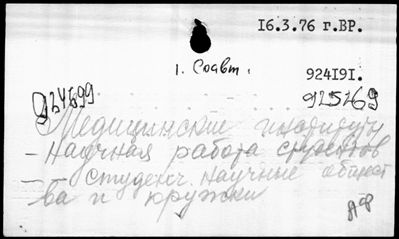 16.3.76 г.ВР.
1. Соавт.
924191.
924699
925269
Медицинские институты
- Научная работа студентов
- студенч. научные общест
ва и кружки